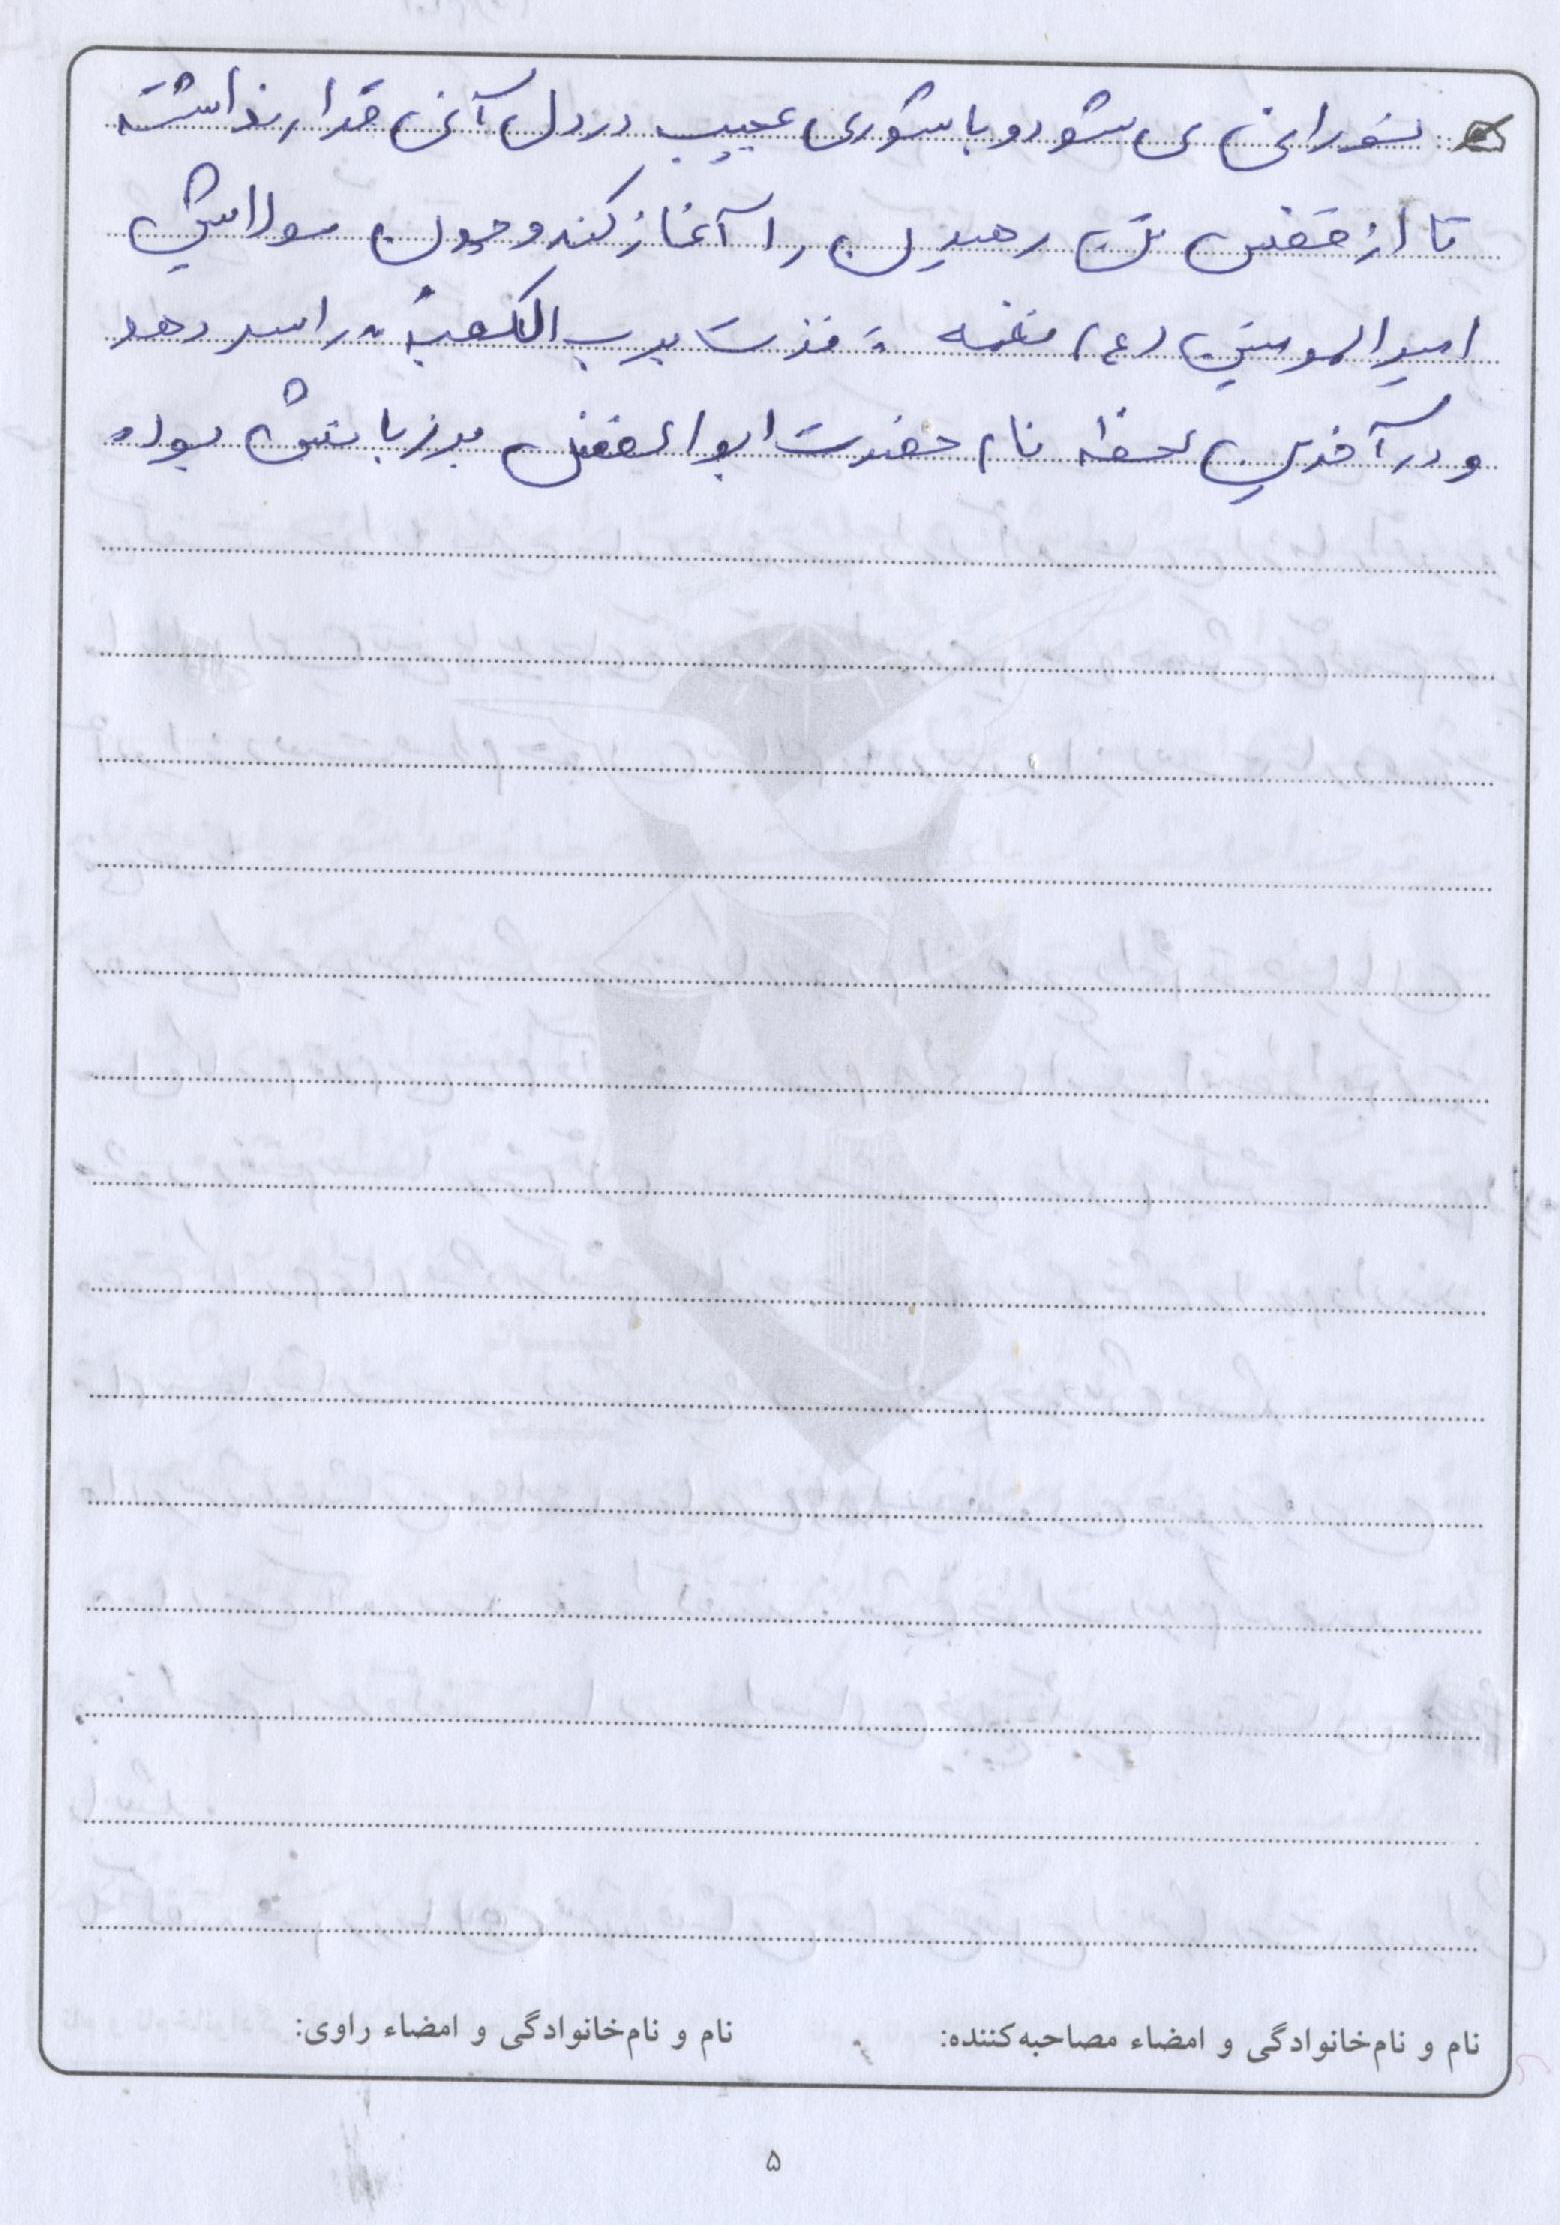 نورانی می شود و با شوری عجیب در دل آنی قرار نداشته
تا از قفس تن رهیدن را آغاز کند و چون مولایش
امیرالمومنین (ع) نغمه " فزت برب الکعبه " را سر دهد
و در آخرین لحظه نام حضرت ابوالفضل بر زبانش بود.
نام و نام‌خانوادگی و امضاء مصاحبه‌کننده:
نام و نام‌خانوادگی و امضاء راوی:
۵